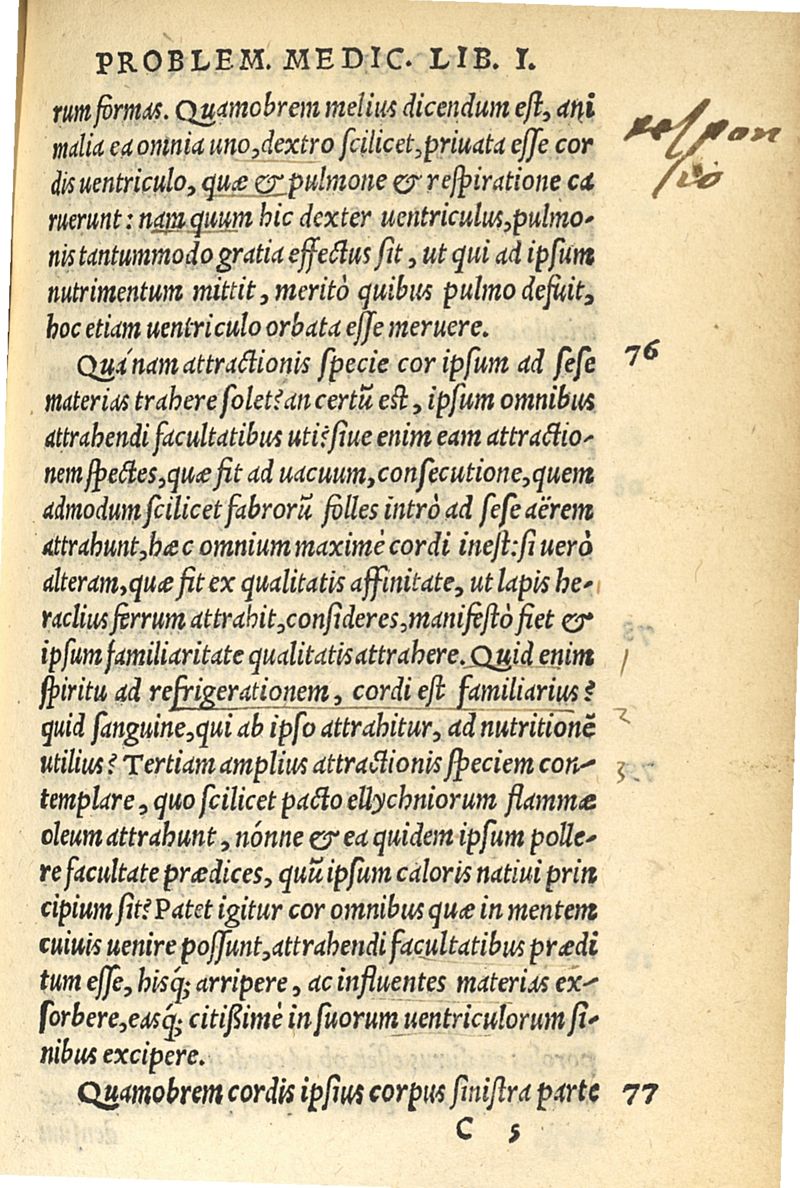 PROBLEM. MEDIC. LIB. I.
rum formas. Quamobrem melius dicendum est, ani
malia ea omnia uno, dextro scilicet, priuata esse cor
dis uentriculo, quæ & pulmone & respiratione ca
ruerunt: nam quum hic dexter uentriculus, pulmo-
nis tantummodo gratia effectus sit, ut qui ad ipsum
nutrimentum mittit, meritò quibus pulmo defuit,
hoc etiam uentriculo orbata esse meruere.
respon
sio
Quánam attractionis specie cor ipsum ad sese
76
materias trahere solet? an certũ est, ipsum omnibus
attrahendi facultatibus uti? siue enim eam attractio-
nem spectes, quæ fit ad uacuum, consecutione, quem
admodum scilicet fabrorũ folles intrò ad sese aërem
attrahunt, hæc omnium maximè cordi inest: si uerò
alteram, quæ fit ex qualitatis affinitate, ut lapis he-
raclius ferrum attrahit, consideres, manifestò fiet &
ipsum familiaritate qualitatis attrahere. Quid enim
1
spiritu ad refrigerationem, cordi est familiarius?
2
quid sanguine, qui ab ipso attrahitur, ad nutritionẽ
utilius? Tertiam amplius attractionis speciem con-
3
templare, quo scilicet pacto ellychniorum flammæ
oleum attrahunt, nónne & ea quidem ipsum polle-
re facultate prædices, quũ ipsum caloris natiui prin
cipium sit? Patet igitur cor omnibus quæ in mentem
cuiuis uenire possunt, attrahendi facultatibus prædi
tum esse, hisq́; arripere, ac influentes materias ex-
sorbere, easq́; citißimè in suorum uentriculorum si-
nibus excipere.
Quamobrem cordis ipsius corpus sinistra parte
77
C 5